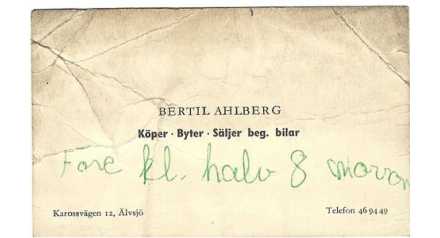 BERTIL AHLBERG
Köper · Byter · Säljer beg. bilar
Före kl. halv 8 morron
Karossvägen 12, Älvsjö
Telefon 46 94 49